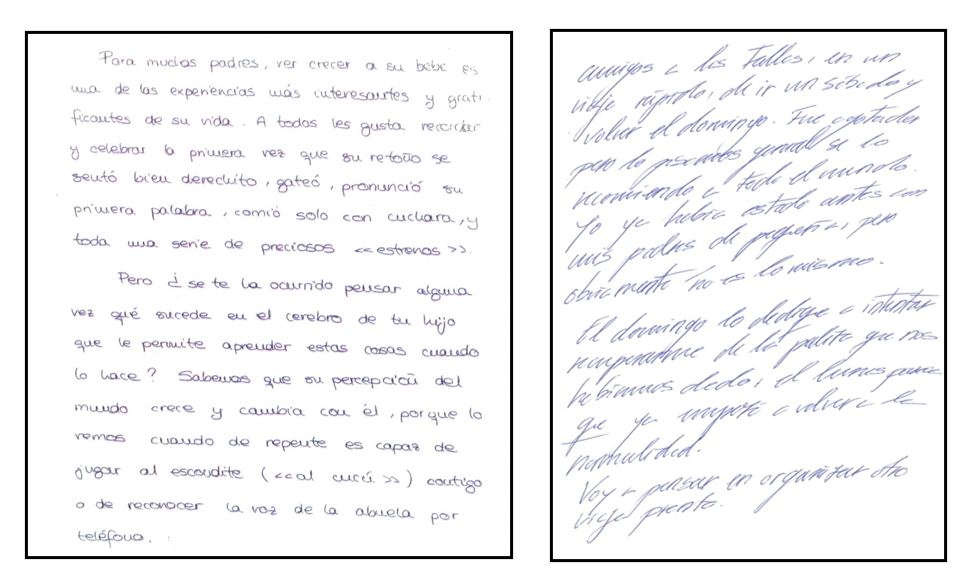 Para muchos padres, ver crecer a su bebé es
una de las experiencias más interesantes y grati-
ficantes de su vida. A todos les gusta recordar
y celebrar la primera vez que su retoño se
sentó bien derechito, gateó, pronunció su
primera palabra, comió solo con cuchara, y
toda una serie de preciosos <<estrenos>>.
Pero ¿se te ha ocurrido pensar alguna
vez qué sucede en el cerebro de tu hijo
que le permite aprender estas cosas cuando
lo hace? Sabemos que su percepción del
mundo crece y cambia con él, porque lo
vemos cuando de repente es capaz de
jugar al escondite (<<al cucú>>) contigo
o de reconocer la voz de la abuela por
teléfono.
amigos a las Fallas, en un
viaje rápido, de ir un sábado y
volver el domingo. Fue agotador
pero lo pasamos genial se lo
recomiendo a todo el mundo.
Yo ya había estado antes con
mis padres de pequeña, pero
obviamente no es lo mismo.
El domingo lo dedique a intentar
recuperarme de la paliza que nos
habíamos dado, el lunes
que ya empezé a volver a la
normalidad.
Voy a pensar en organizar otro
viaje pronto.